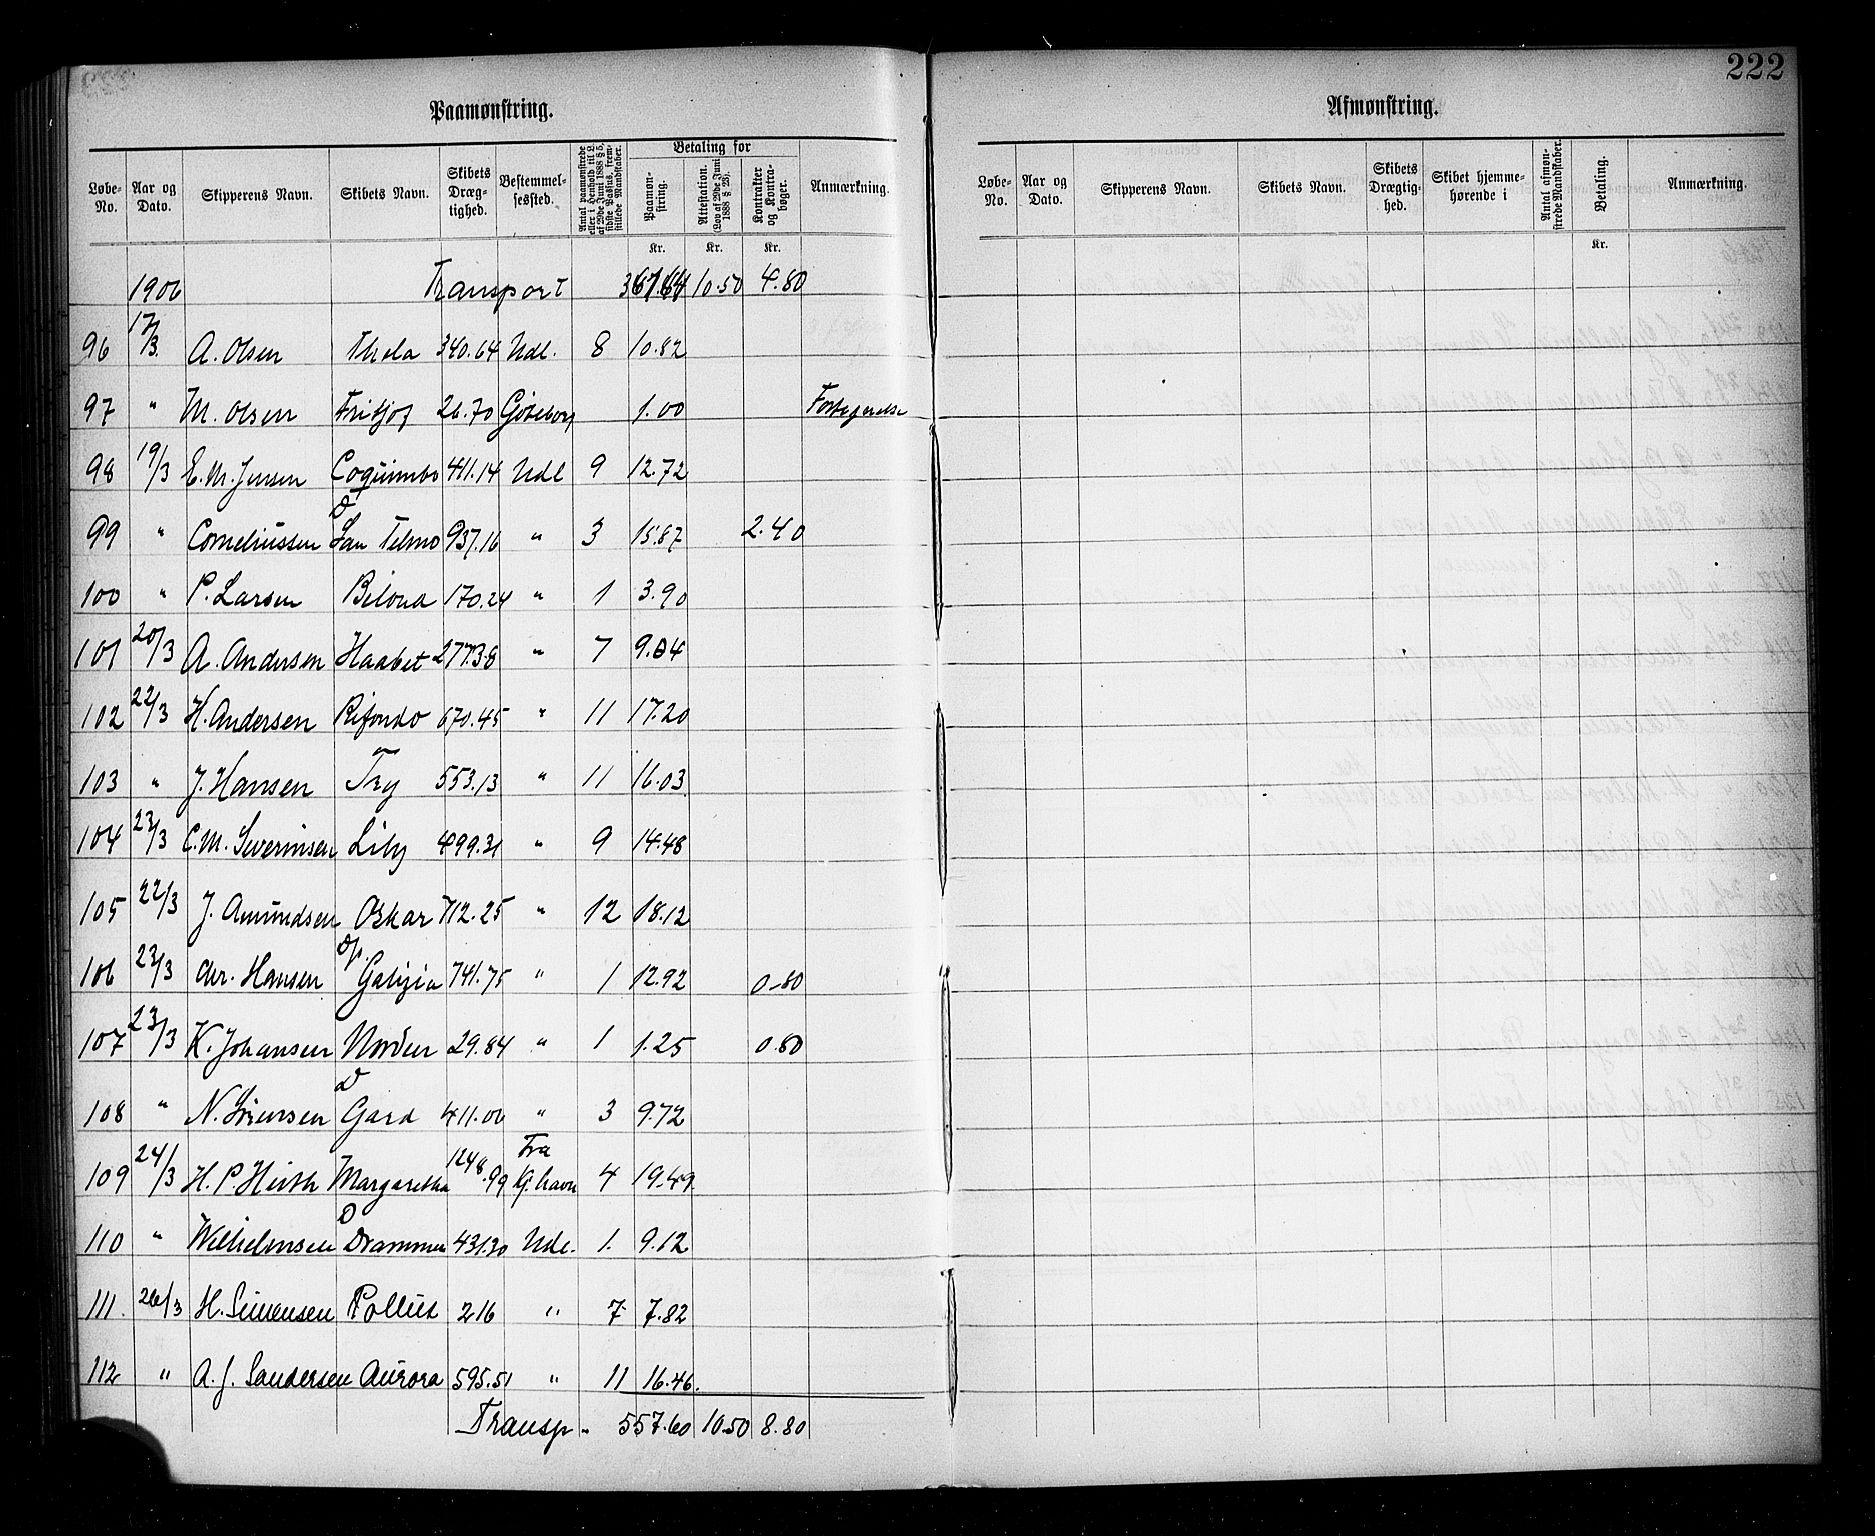 222
Paamønstring.
Løbe-No. Aar og Dato. Skipperens Navn. Skibets Navn. Skibets Dræg-tighed. Bestemmel-sessted. Antal paamønstrede eller i Henhold til L. af 29de Juni 1888 § 5, sidste Passus, frem-stillede Mandskaber. Betaling for Paamøn-string. Attestation. (Lov af 29de Juni 1888 § 23). Kontrakter og Kontra-bøger. Anmærkning.
Kr. Kr. Kr.
1906 Transport 367.64 10.50 4.80
96 17/3 A. Olsen Thela 340.64 Udl. 8 10.82
97 " M. Olsen Fritjof 26.70 Göteborg 1.00
98 19/3 E. M. Jensen Coquimbo 411.14 Udl 9 12.72
99 " Corneliussen D San Telmo 937.16 " 3 15.87 2.40
100 " P. Larsen Belona 170.24 " 1 3.90
101 20/3 A. Andersen Haabet 277.38 " 7 9.04
102 22/3 H. Andersen Rifondo 670.45 " 11 17.20
103 " J. Hansen Try 553.13 " 11 16.03
104 23/3 C. M. Severinsen Liby 499.31 " 9 14.48
105 22/3 J. Amundsen Oskar 712.25 " 12 18.12
106 23/3 Chr. Hansen D/s. Galizia 741.75 " 1 12.92 0.80
107 23/3 K. Johansen Norden 29.84 " 1 1.25 0.80
108 " N. Sörensen D Gard 411.06 " 3 9.72
109 24/3 H. P. Hirth Margaretha 1248.99 Fra Kj. havn 4 19.49
110 " Wilhelmsen D Drammen 431.30 Udl. 1. 9.12
111. 26/3 H. Simensen Pollux 216 " 7 7.82
112 " A. J. Sandersen Aurora 595.51 " 11 16.46.
Transp " 557.60 10.50 8.80
Afmønstring.
Løbe-No. Aar og Dato. Skipperens Navn. Skibets Navn. Skibets Drægtig-hed. Skibet hjemme-hørende i Antal afmøn-strede Mandskaber. Betaling. Anmærkning.
Kr.